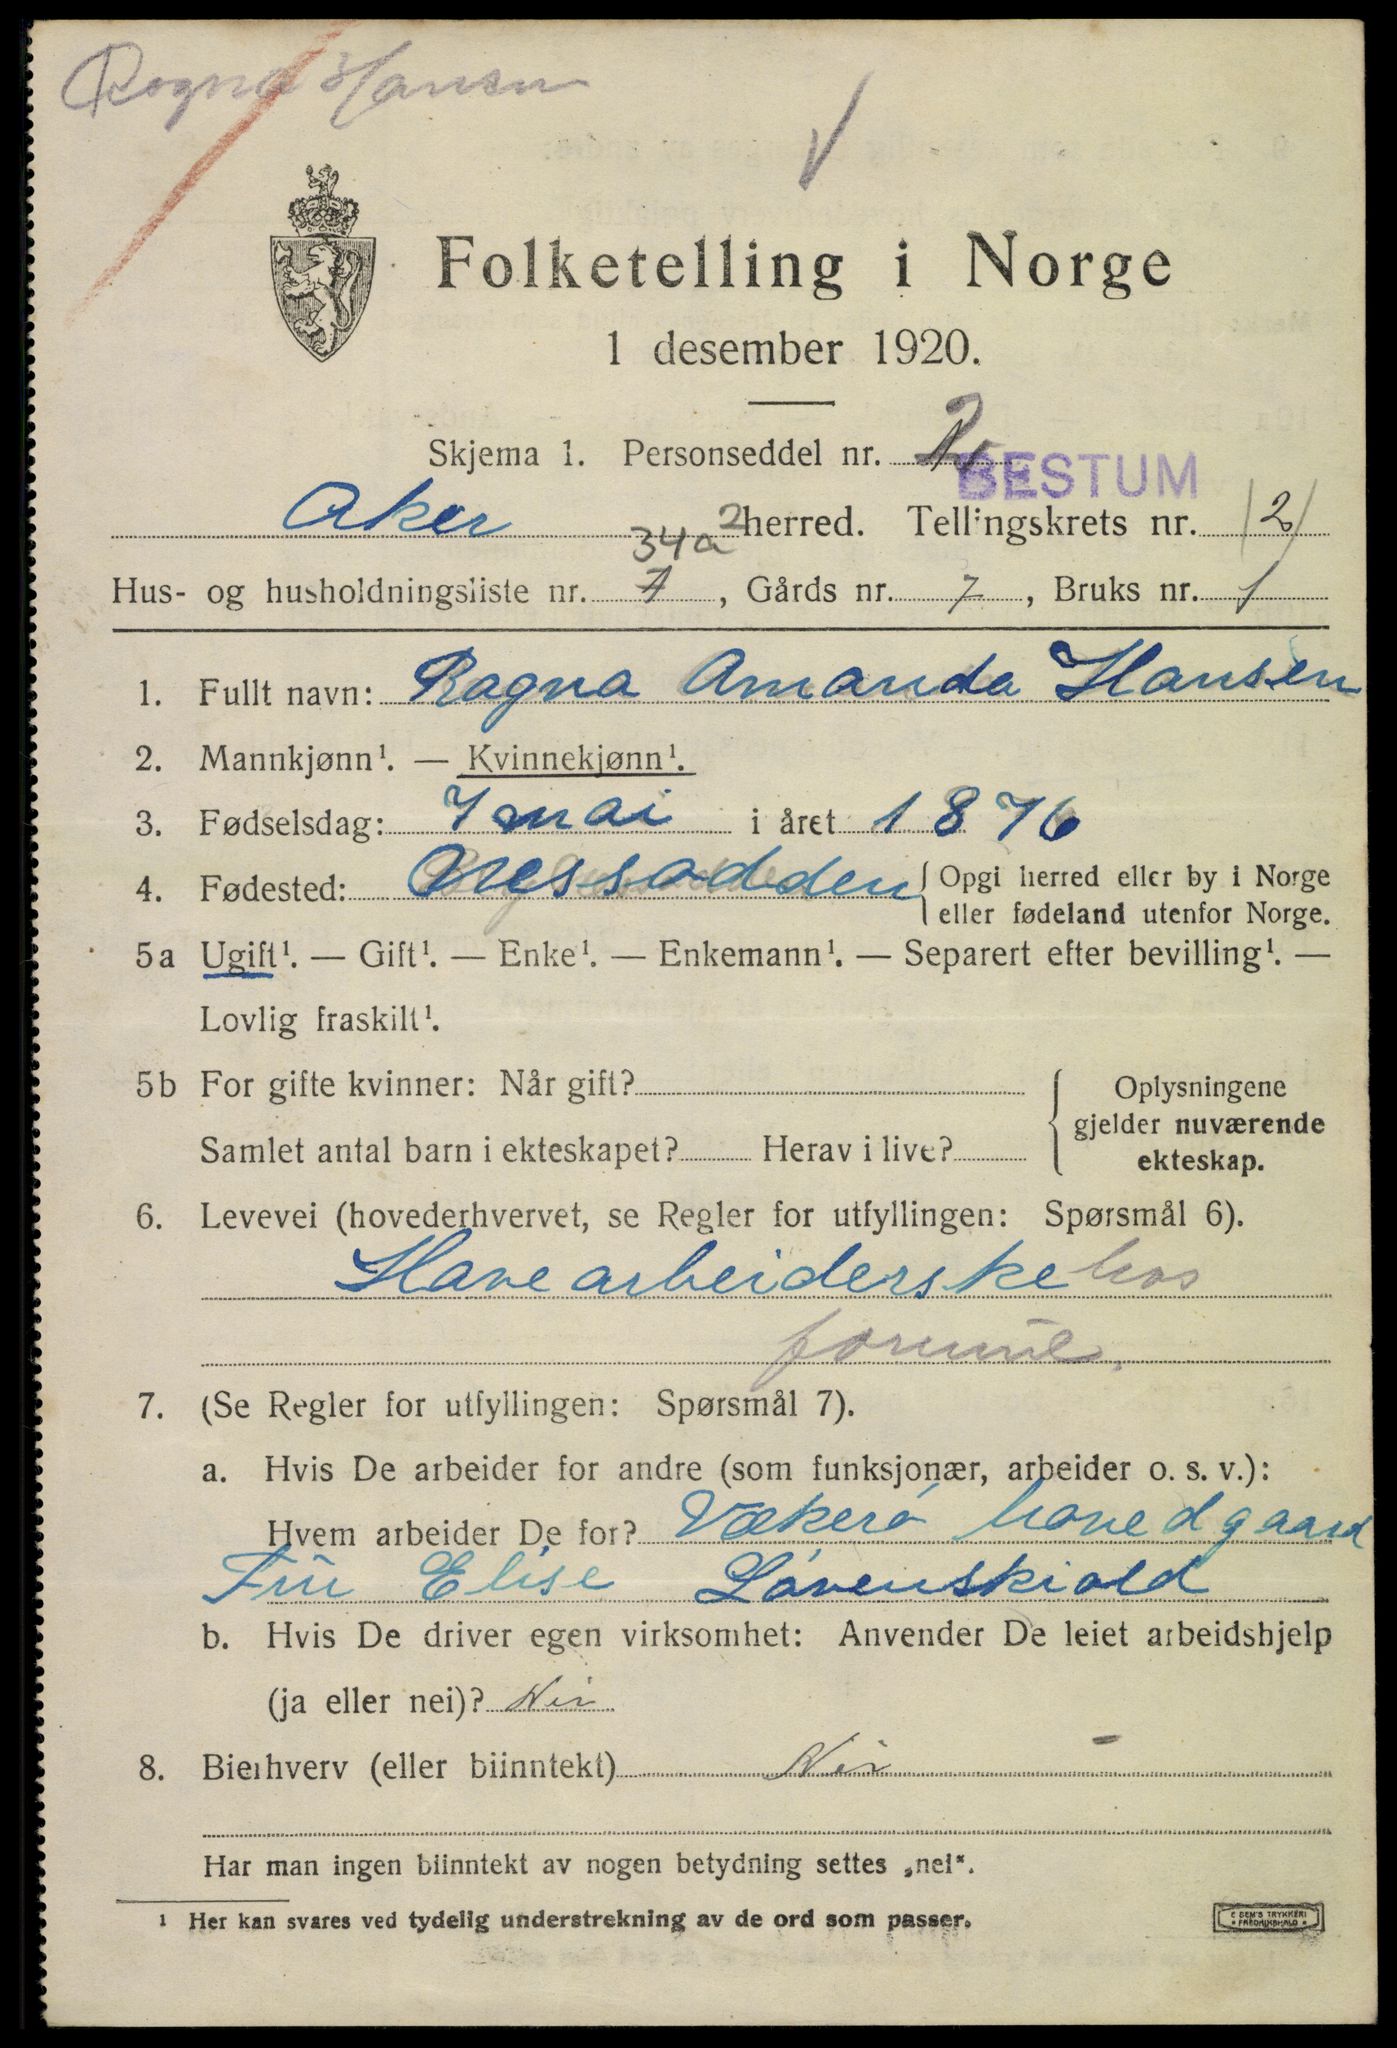 Ragna Hansen
Folketelling i Norge
1 desember 1920.
Skjema 1. Personseddel nr. 2
BESTUM
Aker herred. Tellingskrets nr. 2
34a 2
Hus- og husholdningsliste nr. 7, Gårds nr. 7, Bruks nr. 1
1. Fullt navn: Ragna Amanda Hansen
2. Mannkjønn¹. — Kvinnekjønn¹.
3. Fødselsdag: 7 mai i året 1876
4. Fødested: Nessodden { Opgi herred eller by i Norge
eller fødeland utenfor Norge.
5a Ugift¹. — Gift¹. — Enke¹. — Enkemann¹. — Separert efter bevilling¹. —
Lovlig fraskilt¹.
5b For gifte kvinner: Når gift?
Samlet antal barn i ekteskapet? Herav i live?
Oplysningene
gjelder nuværende
ekteskap.
6. Levevei (hovederhvervet, se Regler for utfyllingen: Spørsmål 6).
Havearbeiderske hos
7. (Se Regler for utfyllingen: Spørsmål 7).
a. Hvis De arbeider for andre (som funksjonær, arbeider o. s. v.):
Hvem arbeider De for? Vækerø hovedgaard
Fru Elise Løvenskiold
b. Hvis De driver egen virksomhet: Anvender De leiet arbeidshjelp
(ja eller nei)? Nei
8. Bierhverv (eller biinntekt) Nei
Har man ingen biinntekt av nogen betydning settes „nei“.
¹ Her kan svares ved tydelig understrekning av de ord som passer.
E SEM'S TRYKKERI
FREDRIKSHALD